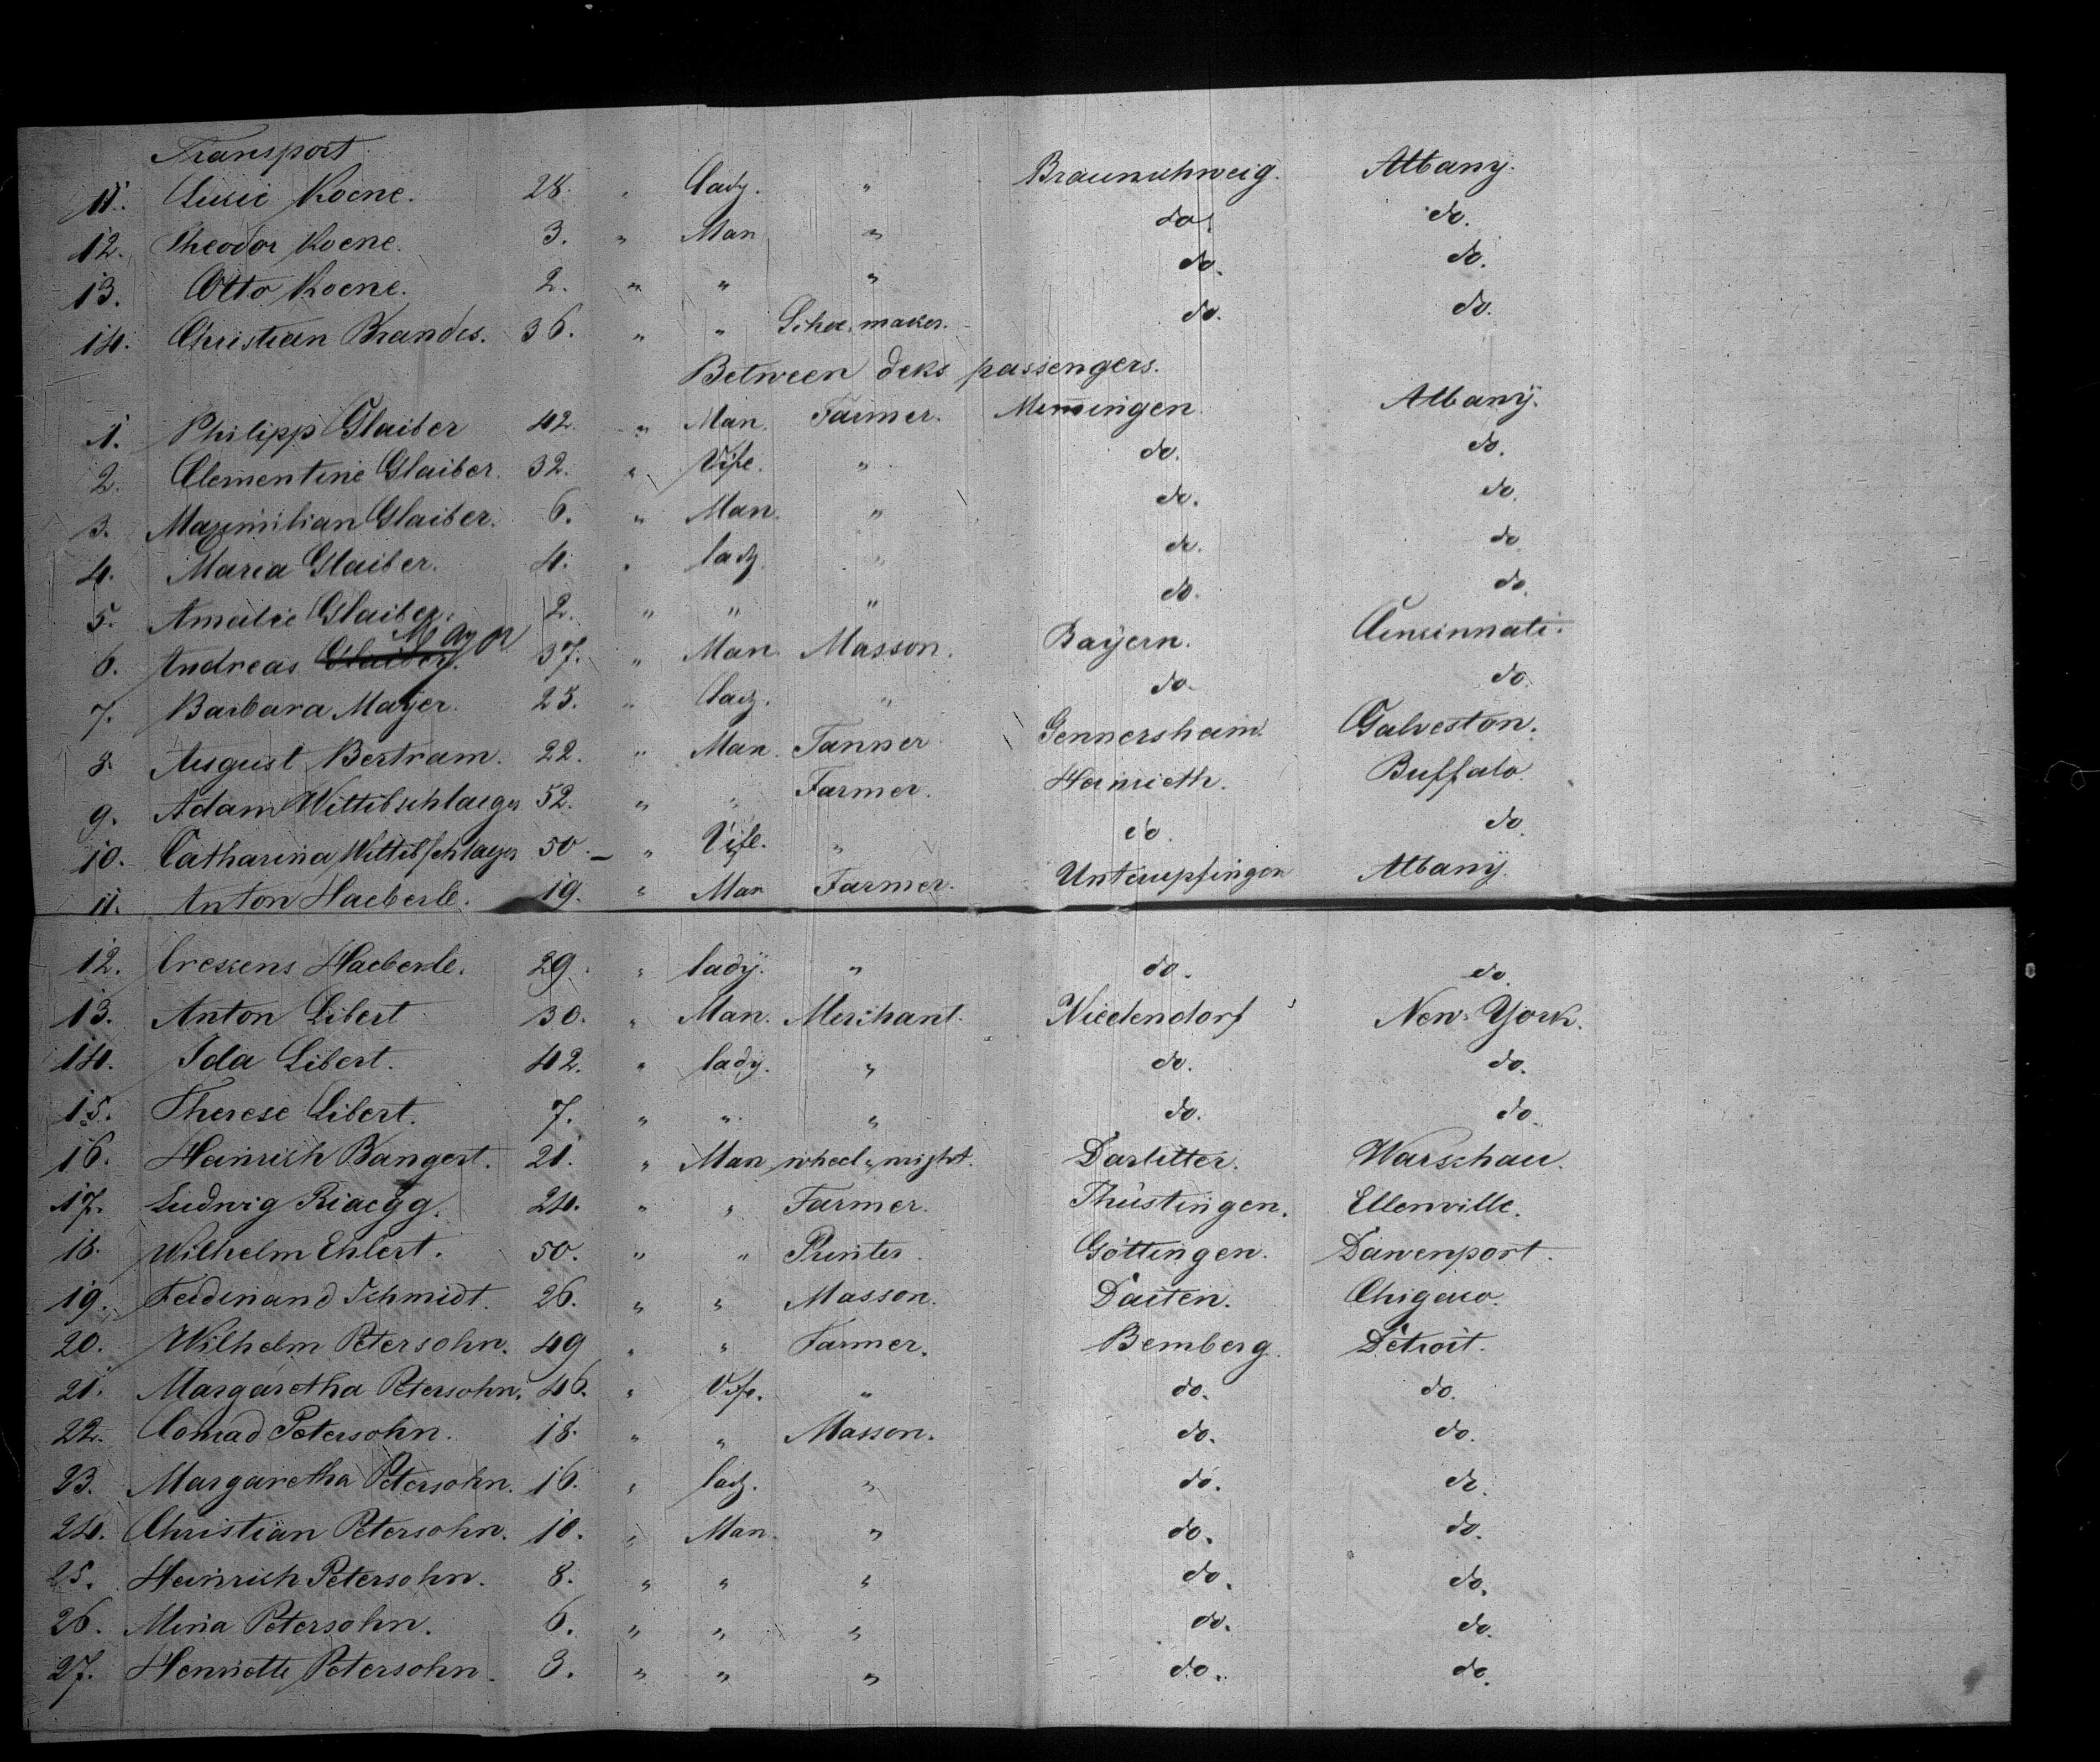 Transport
11. Lucie Koene. 28. " lady. " Braunschweig. Albany.
12. Theodor Koene. 3. " Man " do. do.
13. Otto Koene. 2. " " " do. do.
14. Christian Brandes. 36. " " Schoe.maker. do. do.
Between deks passengers.
1. Philipp Glaiber 42. " Man. Farmer. Memingen. Albany.
2. Clementine Glaiber. 32. " Vife. " do. do.
3. Maximilian Glaiber. 6. " Man. " do. do.
4. Maria Glaiber. 4. " lady. " do. do
5. Amalie Glaiber. 2. " " " do. do.
6. Andreas Glaiber. Mayer 37. " Man. Masson. Bayern. Cincinnati.
7. Barbara Mayer. 25. " lady. " do. do.
8. August Bertram. 22. " Man. Tanner Gennersheim. Galveston.
9. Adam Wittibschlaeger 52. " " Farmer. Heinrieth. Buffalo.
10. Catharina Wittibschlaeger 50. " Vife. " do. do.
11. Anton Haeberle. 19. " Man Farmer. Albany.
12. Crescens Haeberle. 29. " lady. " do. do.
13. Anton Libert 30. " Man. Merchant. Niedendorf New-York.
14. Ida Libert. 42. " lady. " do. do.
15. Therese Libert. 7. " " " do. do.
16. Heinrich Bangert. 21. " Man wheel-wright. Warschau.
17. Ludwig 24. " " Farmer. Thüstingen. Ellenville.
18. Wilhelm Ehlert. 50. " " Printer. Göttingen. Dawenport.
19. Ferdinand Schmidt. 26. " " Masson. Chigaco.
20. Wilhelm Petersohn. 49 " " Farmer. Bemberg. Detroit.
21. Margaretha Petersohn. 46. " Vife. " do. do.
22. Conrad Petersohn. 18. " " Masson. do. do.
23. Margaretha Petersohn. 16. " lady. " do. do.
24. Christian Petersohn. 10. " Man. " do. do.
25. Heinrich Petersohn. 8. " " " do. do.
26. Mina Petersohn. 6. " " " do. do.
27. Henriette Petersohn. 3. " " " do. do.